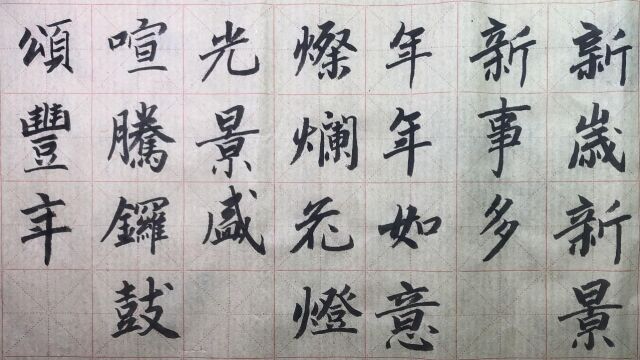 新歲新景
新事多
年年如意
燦爛花燈
光景盛
喧騰鑼鼓
頌豐年